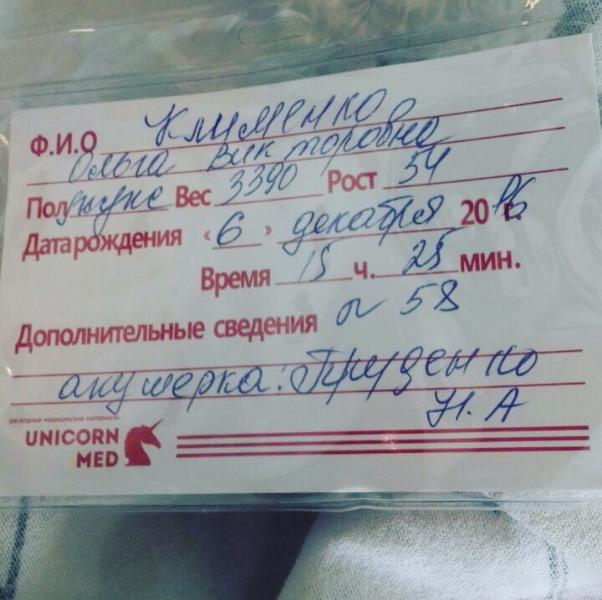 Ф.И.О Клименко
Ольга Викторовна
Пол Вес 3390 Рост 54
Дата рождения «6» декабря 2016 г.
Время 15 ч. 25 мин.
Дополнительные сведения 58
акушерка: Пруденко
Н. А
расходные медицинские материалы
UNICORN
MED